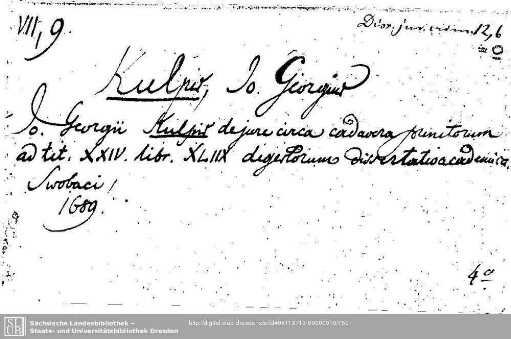 VII, 9.
Diss. jur. civ. 12, 6
Kulpis, Io. Georgius
Io. Georgii Kulpis de jure circa cadavera punitorum
ad tit. XXIV. libr. XLIIX digestorum dissertatio academica.
Swobaci,
1689.
4º
SLUB
Sächsische Landesbibliothek –
Staats- und Universitätsbibliothek Dresden